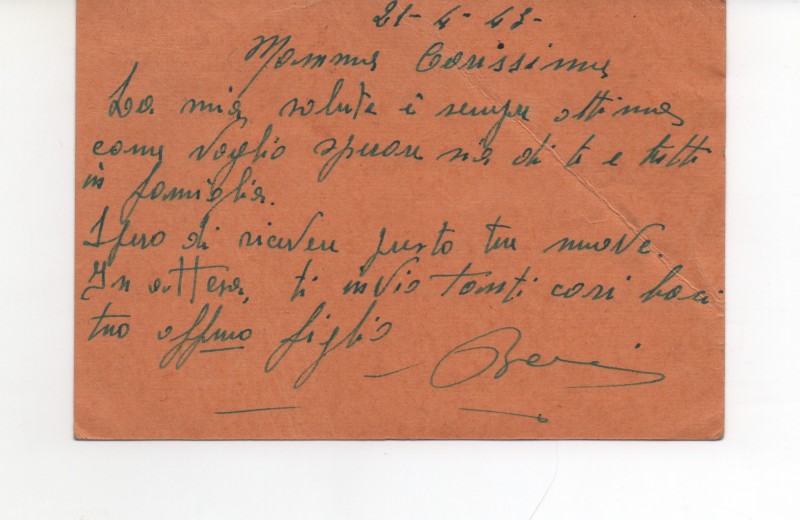 21-4-43-
Mamma Carissima
La mia salute è sempre ottima
come voglio sperare sia di te e tutti
in famiglia.
Spero di ricevere presto tue nuove.
In attesa, ti invio tanti cari baci
tuo affmo figlio